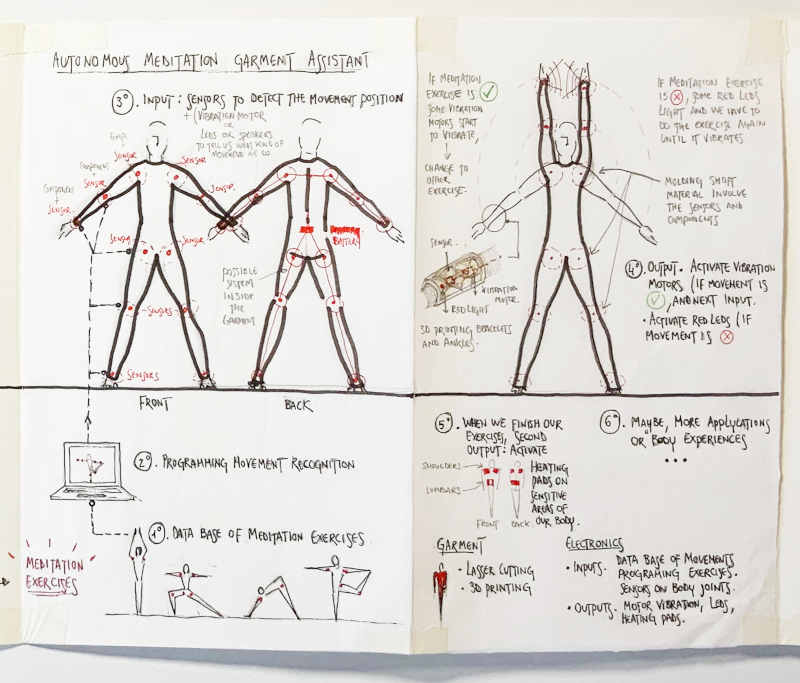 AUTONOMOUS MEDITATION GARMENT ASSISTANT
3º. INPUT: SENSORS TO DETECT THE MOVEMENT POSITION
+ (VIBRATION MOTOR
OR
LEDS OR SPEAKERS
TO TELL US WHAT KIND OF
MOVEMENT WE DO
SENSOR
SENSOR
SENSOR
SENSOR
SENSOR
SENSOR
SENSOR
SENSORS
SENSORS
BATTERY
POSSIBLE
SYSTEM
INSIDE
THE
GARMENT
FRONT
BACK
2º. PROGRAMMING MOVEMENT RECOGNITION
1º. DATA BASE OF MEDITATION EXERCISES
MEDITATION
EXERCISES
IF MEDITATION
EXERCISE IS
SOME VIBRATION
MOTORS START
TO VIBRATE,
CHANGE TO
OTHER
EXERCISE.
IF MEDITATION EXERCISE
IS , SOME RED LEDS
LIGHT AND WE HAVE TO
DO THE EXERCISE AGAIN
UNTIL IT VIBRATES
MOLDING SHAPE
MATERIAL INVOLVE
THE SENSORS AND
COMPONENTS
SENSOR
VIBRATION
MOTOR
RED LIGHT
3D PRINTING BRACELETS
AND ANKLES.
4º. OUTPUT. ACTIVATE VIBRATION
MOTORS (IF MOVEMENT IS
, AND NEXT INPUT.
• ACTIVATE RED LEDS (IF
MOVEMENT IS
5º. WHEN WE FINISH OUR
EXERCISES, SECOND
OUTPUT: ACTIVATE
HEATING
PADS ON
SENSITIVE
AREAS OF
OUR BODY.
SHOULDERS
LUMBARS
FRONT BACK
6º MAYBE, MORE APPLYCATIONS
OR BODY EXPERIENCES
...
GARMENT
• LASSER CUTTING
• 3D PRINTING
ELECTRONICS
• INPUTS. DATA BASE OF MOVEMENTS
PROGRAMING EXERCISES.
SENSORS ON BODY JOINTS.
• OUTPUTS. MOTOR VIBRATION, LEDS,
HEATING PADS.